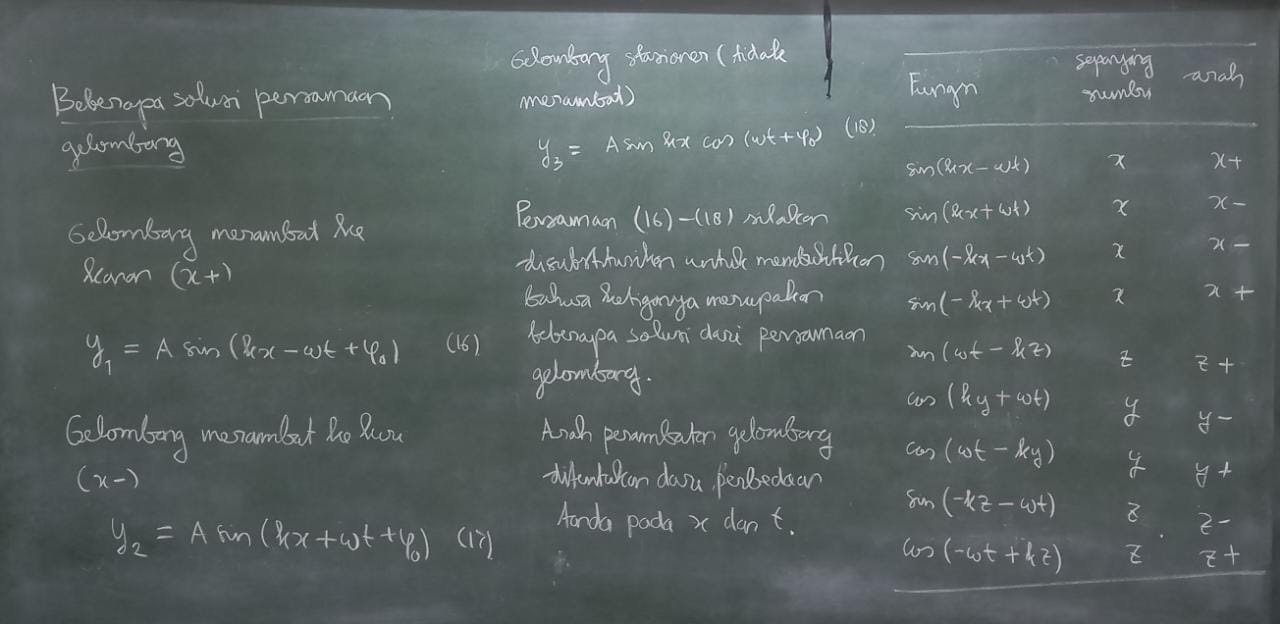 Beberapa solusi persamaan
gelombang
Gelombang merambat ke
kanan (x+)
y₁ = A sin (kx − ωt + φ₀) (16)
Gelombang merambat ke kiri
(x−)
y₂ = A sin (kx + ωt + φ₀) (17)
Gelombang stasioner (tidak
merambat)
y₃ = A sin kx cos (ωt + φ₀) (18)
Persamaan (16)−(18) silakan
disubstitusikan untuk membuktikan
bahwa ketiganya merupakan
beberapa solusi dari persamaan
gelombang.
Arah perambatan gelombang
ditentukan dari perbedaan
tanda pada x dan t.
Fungsi sepanjang sumbu arah
sin(kx − ωt) x x+
sin(kx + ωt) x x−
sin(−kx − ωt) x x−
sin(−kx + ωt) x x+
sin(ωt − kz) z z+
cos(ky + ωt) y y−
cos(ωt − ky) y y+
sin(−kz − ωt) z z−
cos(−ωt + kz) z z+